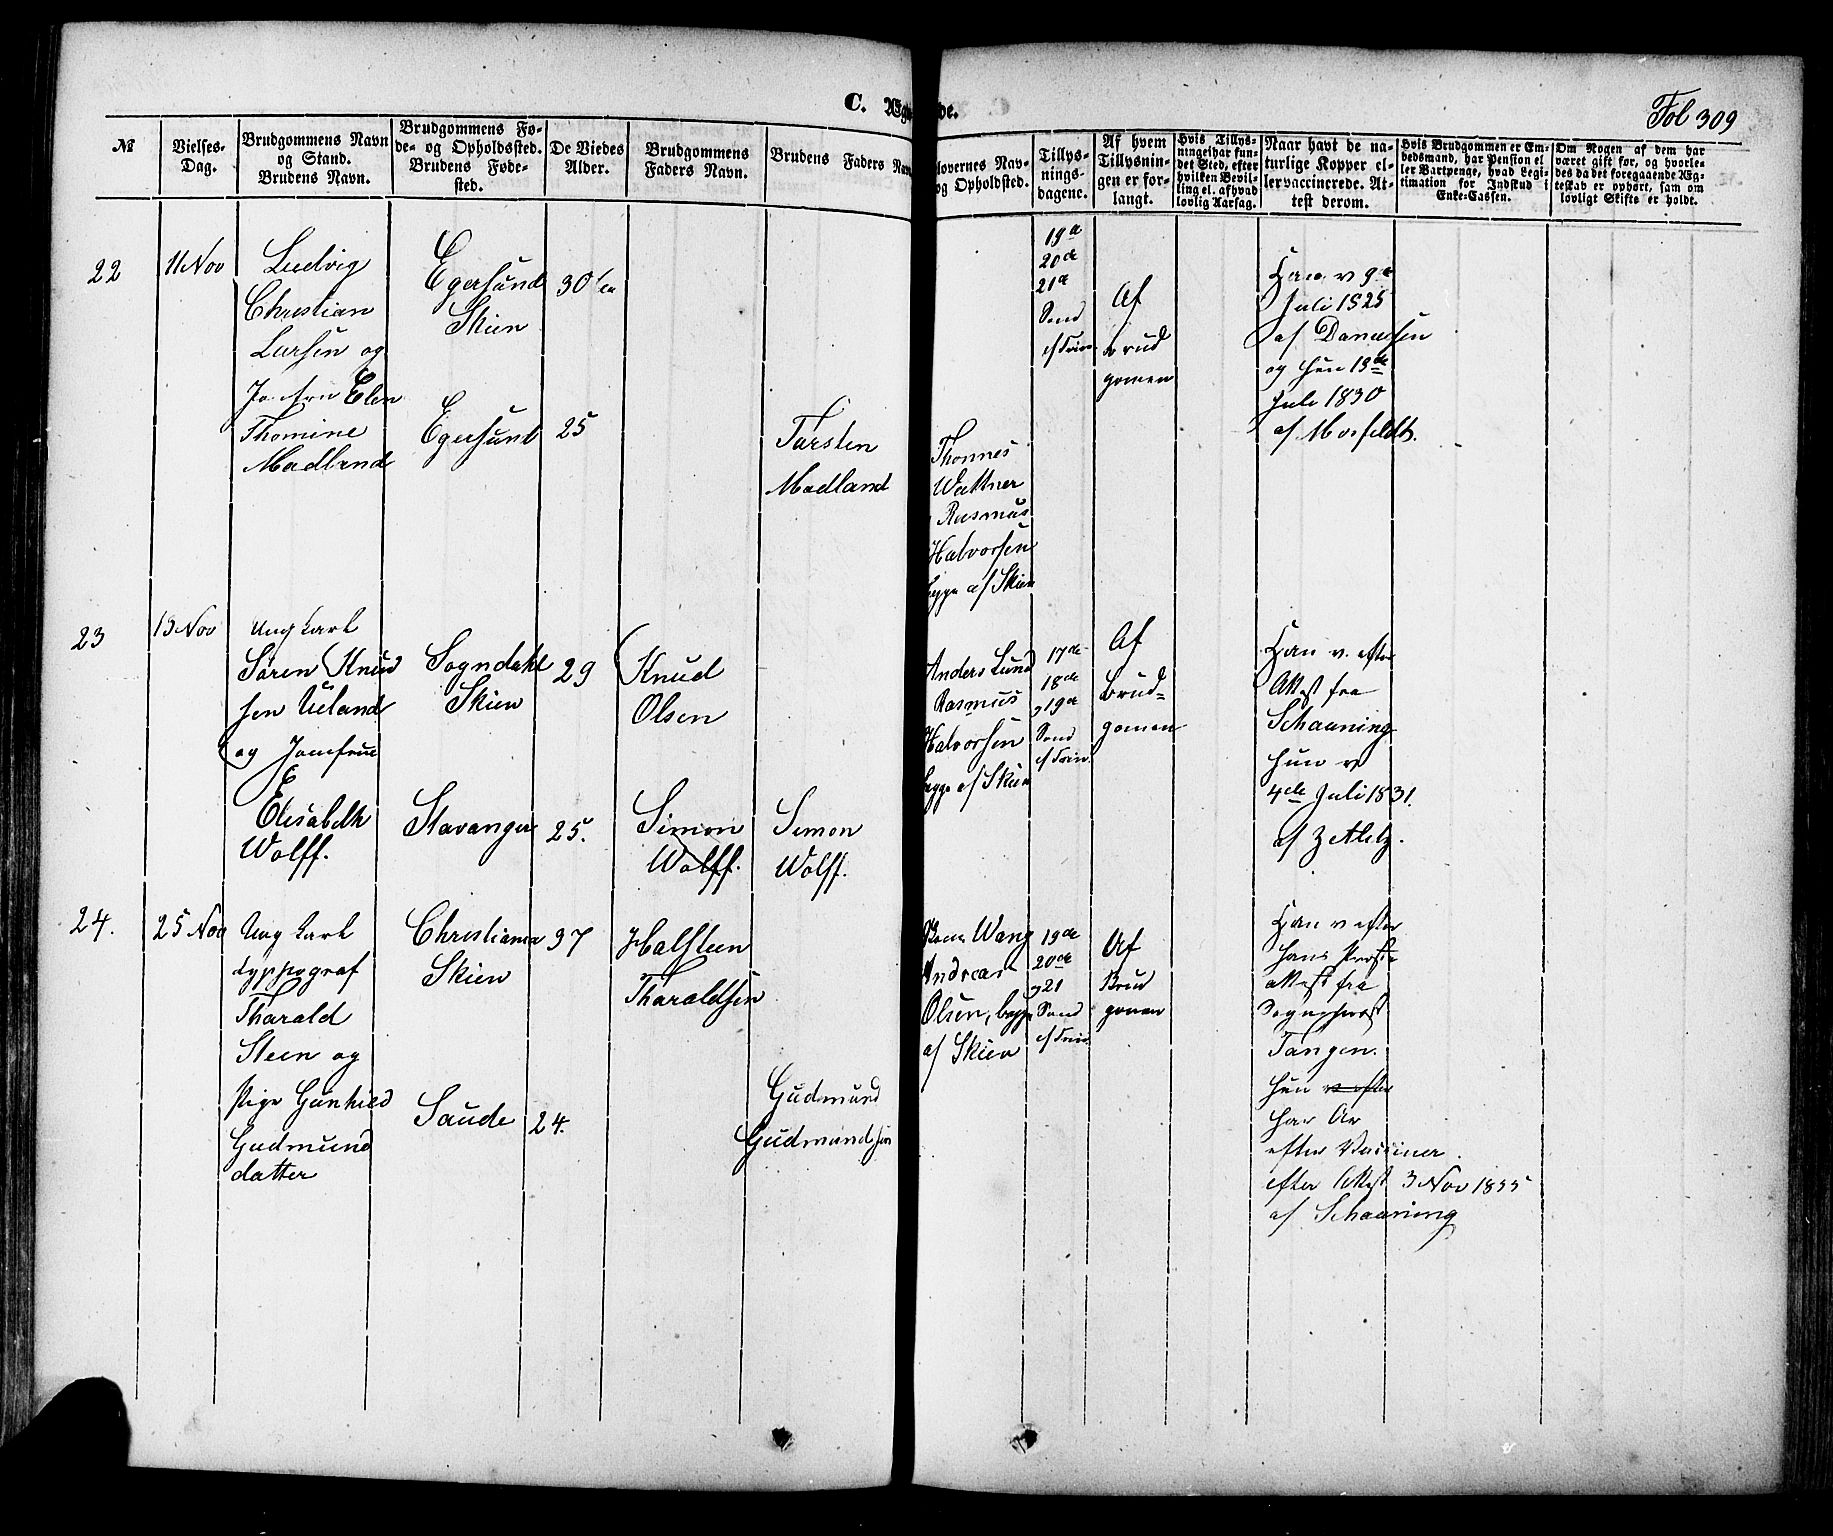 C. Ægteviede.
Fol 309
№
Vielses-
Dag.
Brudgommens Navn
og Stand.
Brudens Navn.
Brudgommens Fø-
de- og Opholdssted.
Brudens Føde-
sted.
De Viedes
Alder.
Brudgommens
Faders Navn.
Brudens Faders Navn
lovernes Nav-
og Opholdsted.
Tillys-
nings-
dagene.
Af hvem
Tillysnin-
gen er for-
langt.
Hvis Tillys-
ningel har fun-
det Sted, efter
hvilken Bevil-
ling el. afhvad
lovlig Aarsag.
Naar havt de na-
turlige Kopper el-
ler vaccinerede. At-
test derom.
Hvis Brudgommen er Em-
bedsmand, har Pension el
ler Vartpenge, hvad Legi-
timation for Indskud i
Enke-Cassen.
Om Nogen af dem har
været gift før, og hvorle-
des da det foregaaende Æg-
teskab er ophørt, sam om
lovligt Skifte er holdt.
22
11 Nov
Ludvig
Christian
Larsen og
Jomfru Elen
Thomine
Madland
Egersund
Skien
Egersund
30
25
Torsten
Madland
Thonnes
Wattner
Rasmus
Halvorsen
begge af Skien
19de
20de
21de
Sønd
ef Trin
Af
Brud
gomen
Han v 9de
Juli 1825
af Danielsen
og Hun 13de
Juli 1830
af Mosfeldt.
23
13 Nov
Ungkarl
Søren Knud
sen Ueland
og Jomfrue
Elisabeth
Wolff.
Sogndahl
Skien
Stavanger
29
25.
Knud
Olsen
Simon
Wolff.
Simon
Wolff.
Anders Lund
Rasmus
Halvorsen
begge af Skien
17de
18de
og 19de
Sønd
ef Trin.
Af
Brud=
gomen
Han v. efter
Attest fra
Schaaning
Hun v
4de Juli 1831.
af Zetlitz.
24.
25 Nov
Ungkarl
typpograf
Tharald
Steen og
Pige Gunhild
Gudmund
datter
Christiania
Skien
Saude
37
24.
Halsteen
Tharaldsen
Gudmund
Gudmundsen
Wang
Andreas
Olsen, begge
af Skien
19de
20de
og 21
Sønd
ef Trin.
Af
Brud
gomen
Han v efter
hans Præste
attest fra
Sogneprest
Tangen.
Hun v efter
har Ar
efter Vacciner.
efter Attest 3 Nov 1855
af Schaaning